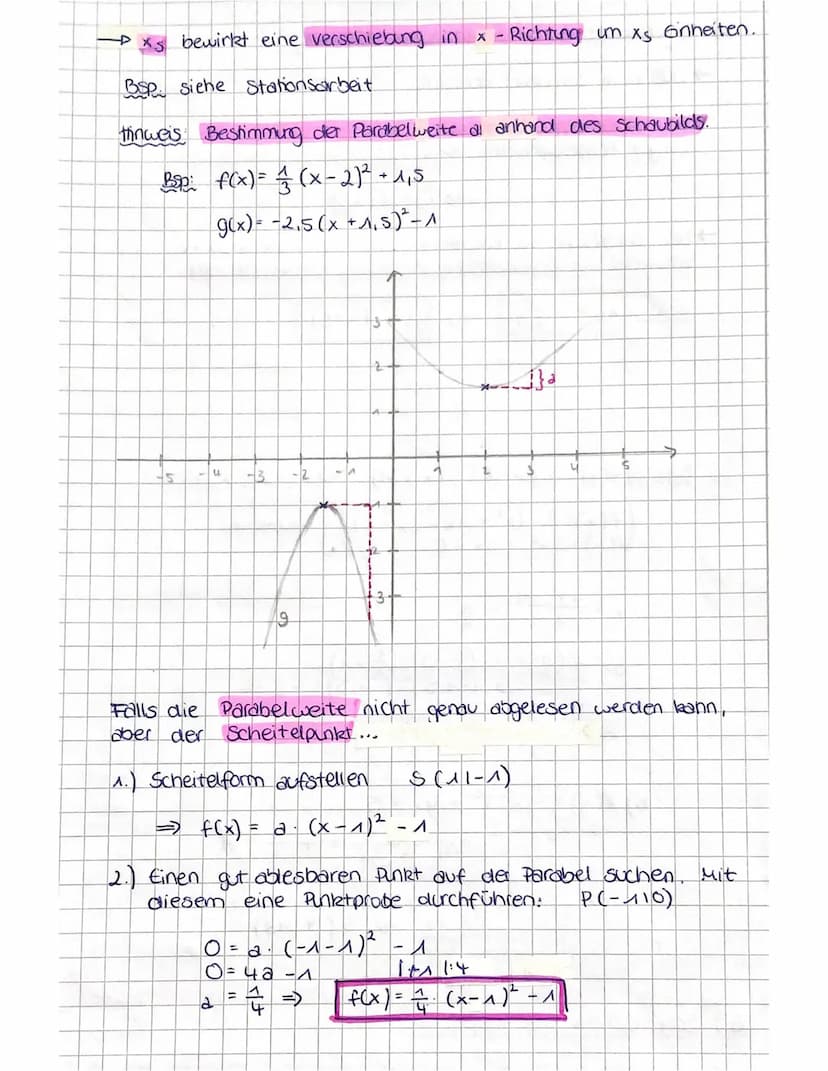 → xₛ bewirkt eine Verschiebung in x-Richtung um xₛ Einheiten.
Bsp. siehe Stationsarbeit
Hinweis: Bestimmung der Parabelweite a anhand des Schaubilds.
Bsp: f(x) = 1/3 (x-2)² + 1,5
g(x) = -2,5 (x + 1,5)² - 1
3
2
} a
1
-5 -4 -3 -2 -1 1 2 3 4 5
1
2
3
g
Falls die Parabelweite nicht genau abgelesen werden kann,
aber der Scheitelpunkt ...
1.) Scheitelform aufstellen S(1|-1)
⇒ f(x) = a · (x-1)² - 1
2.) Einen gut ablesbaren Punkt auf der Parabel suchen. Mit
diesem eine Punktprobe durchführen: P(-1|0)
0 = a · (-1-1)² - 1
0 = 4a - 1 |+1 |:4
a = 1/4 ⇒ f(x) = 1/4 · (x-1)² - 1